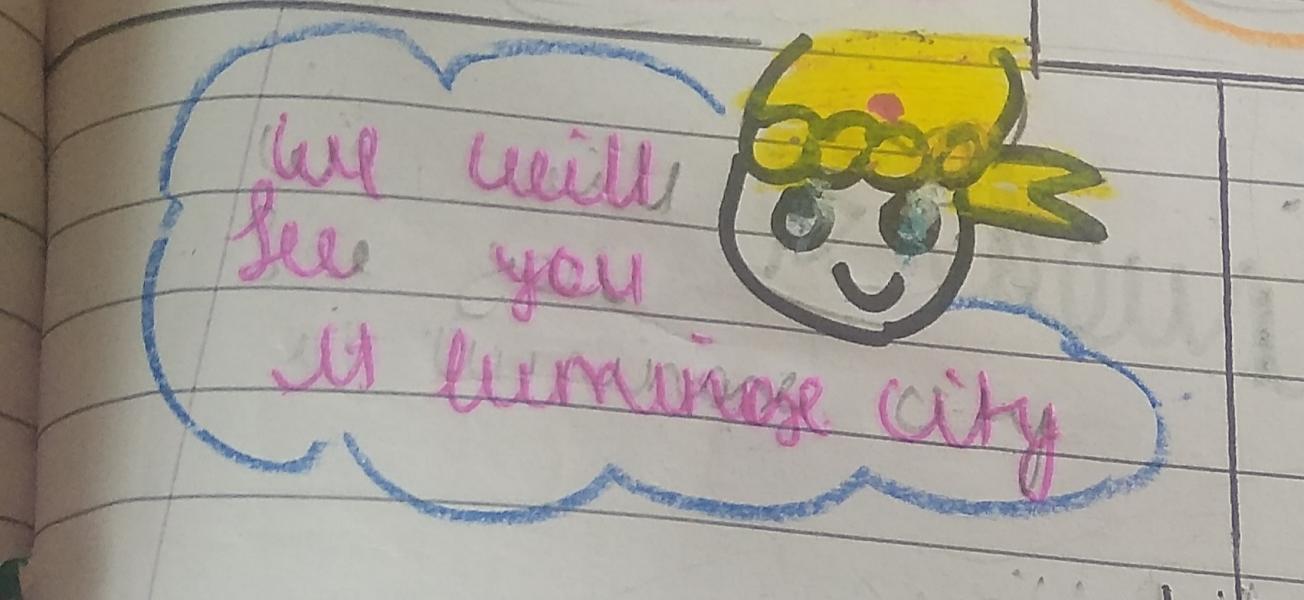 we will
see you
is luminoze city